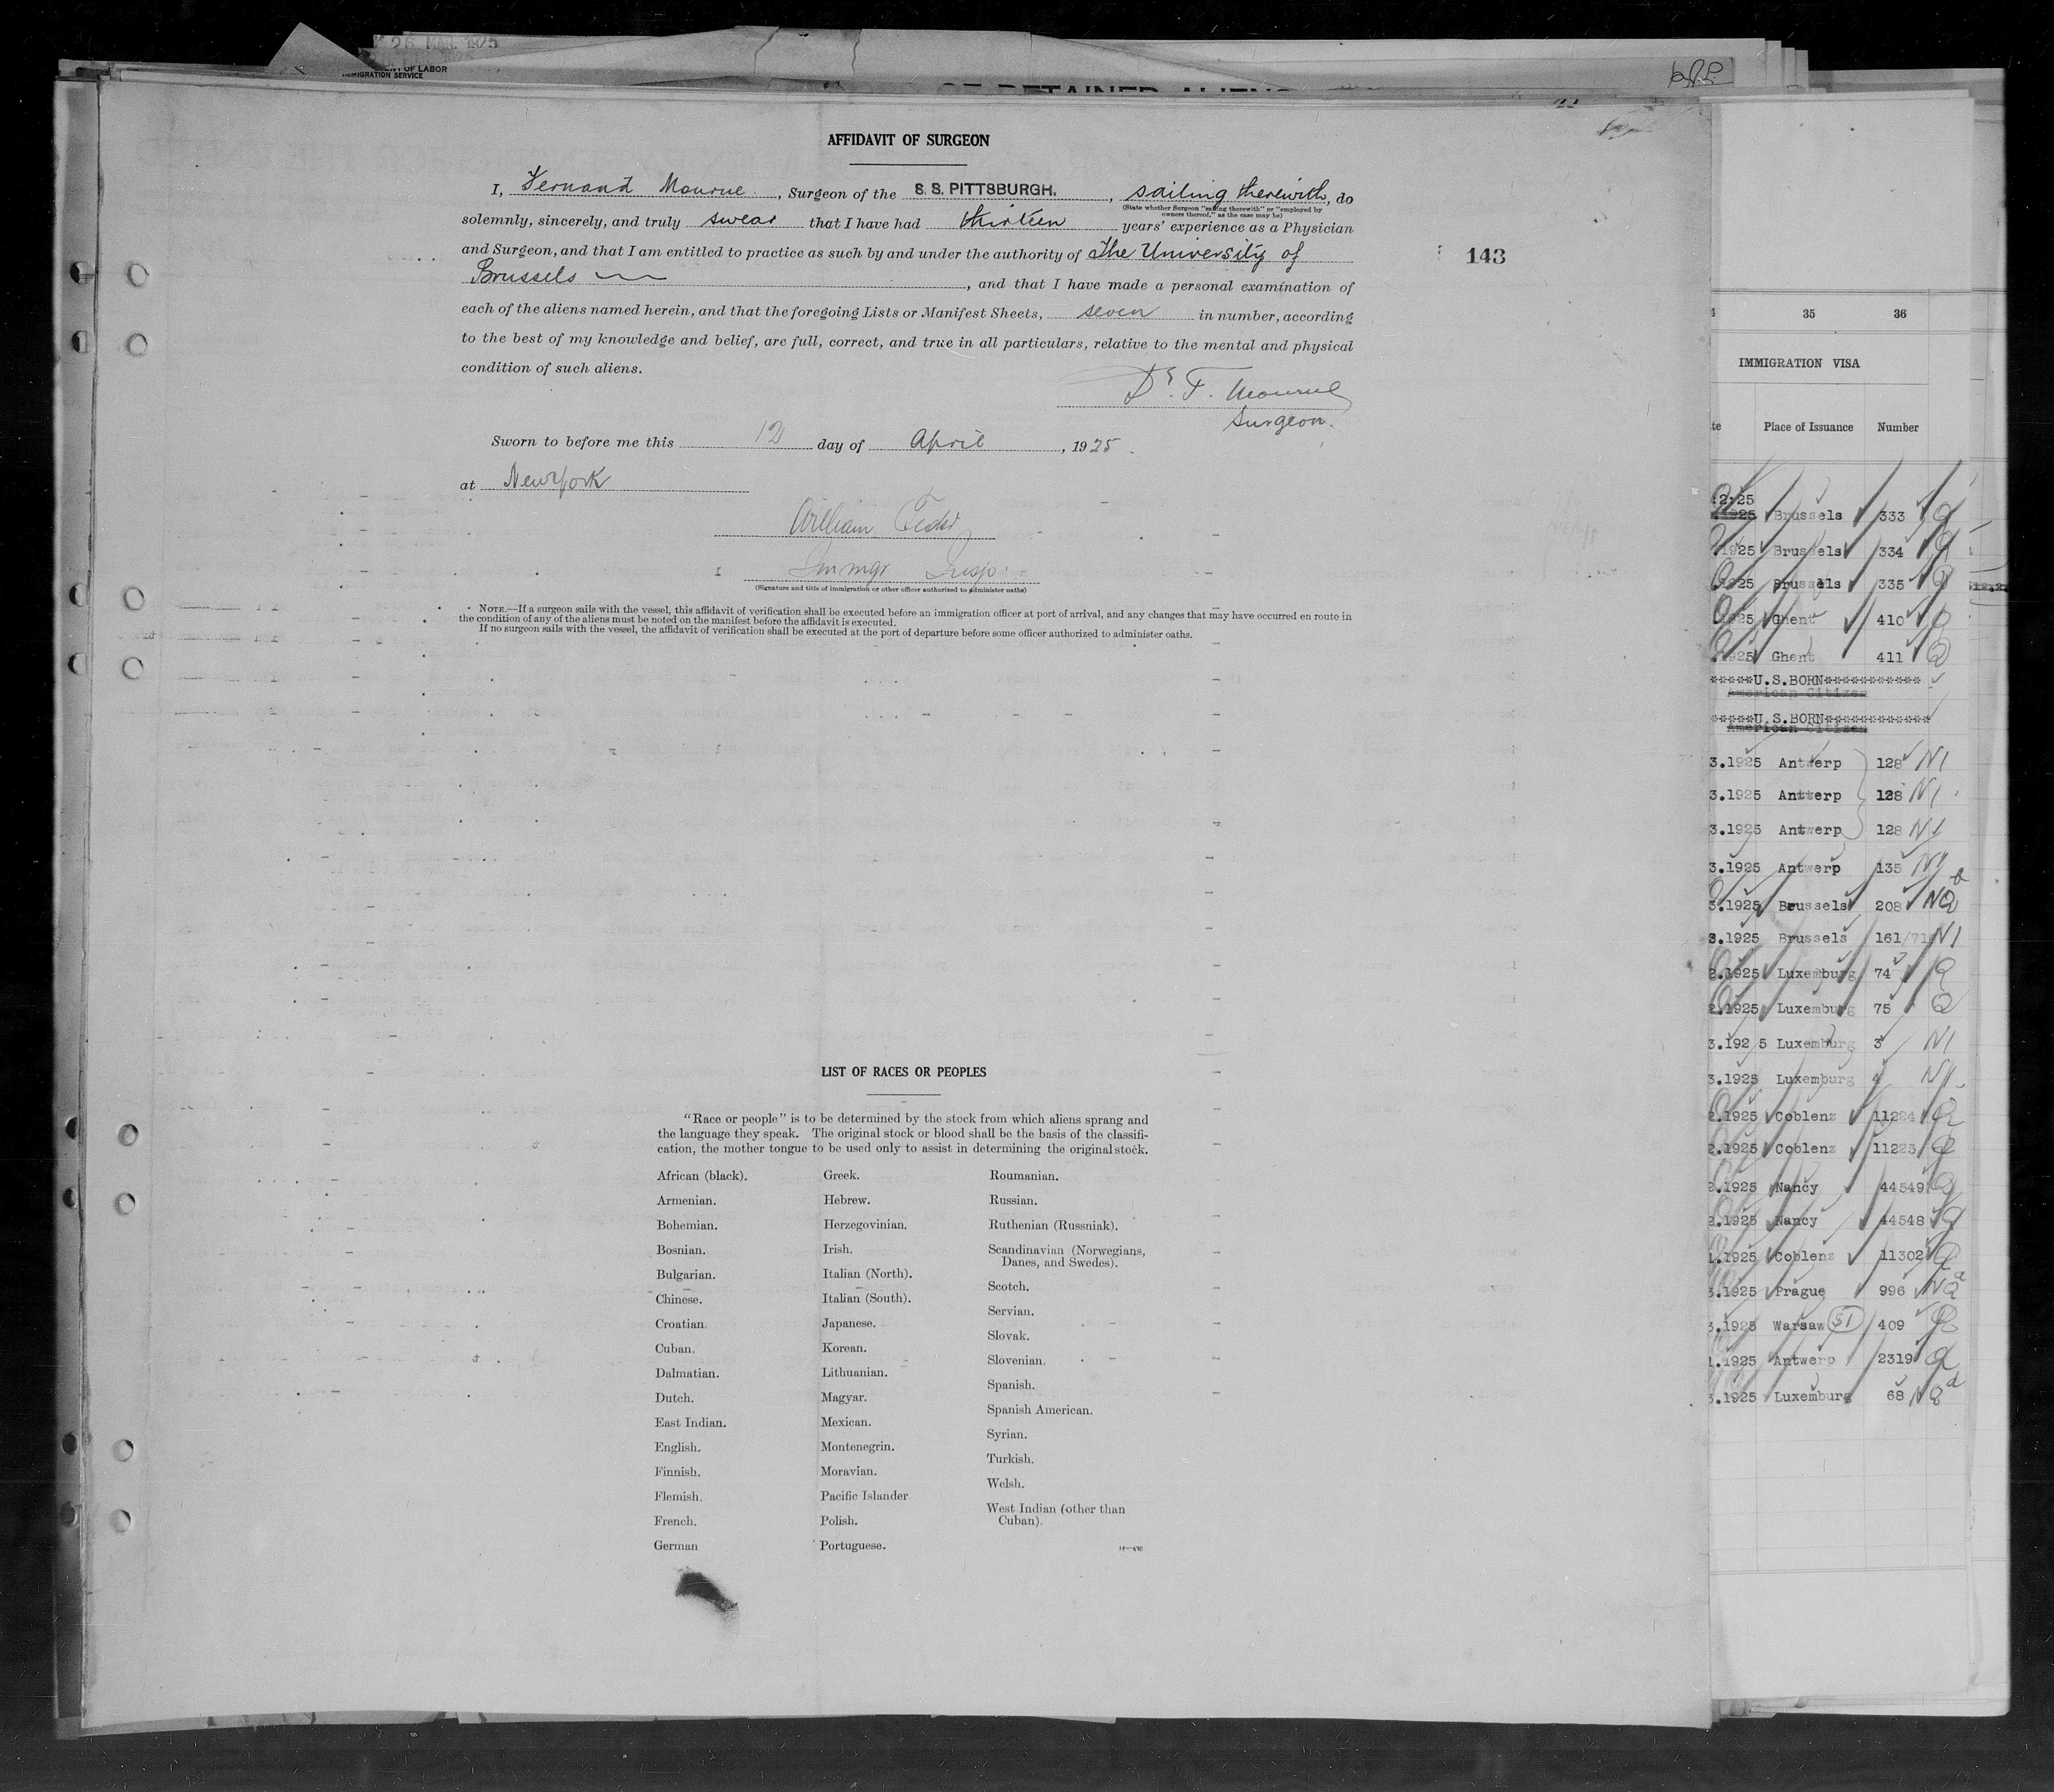 26 MAR. 1925
OF LABOR
IMMIGRATION SERVICE
AFFIDAVIT OF SURGEON
I, Fernand Mourue, Surgeon of the S. S. PITTSBURGH., sailing therewith, do
(State whether Surgeon "sailing therewith" or "employed by
owners thereof," as the case may be)
solemnly, sincerely, and truly swear that I have had thirteen years' experience as a Physician
and Surgeon, and that I am entitled to practice as such by and under the authority of The University of
Brussels, and that I have made a personal examination of
each of the aliens named herein, and that the foregoing Lists or Manifest Sheets, seven in number, according
to the best of my knowledge and belief, are full, correct, and true in all particulars, relative to the mental and physical
condition of such aliens.
Dr. F. Mourue
Surgeon.
Sworn to before me this 12 day of April, 1925.
at New York
William
Immgr Insp.
(Signature and title of immigration or other officer authorized to administer oaths)
NOTE.—If a surgeon sails with the vessel, this affidavit of verification shall be executed before an immigration officer at port of arrival, and any changes that may have occurred en route in
the condition of any of the aliens must be noted on the manifest before the affidavit is executed.
If no surgeon sails with the vessel, the affidavit of verification shall be executed at the port of departure before some officer authorized to administer oaths.
143
LIST OF RACES OR PEOPLES
"Race or people" is to be determined by the stock from which aliens sprang and
the language they speak. The original stock or blood shall be the basis of the classifi-
cation, the mother tongue to be used only to assist in determining the original stock.
African (black).
Armenian.
Bohemian.
Bosnian.
Bulgarian.
Chinese.
Croatian.
Cuban.
Dalmatian.
Dutch.
East Indian.
English.
Finnish.
Flemish.
French.
German
Greek.
Hebrew.
Herzegovinian.
Irish.
Italian (North).
Italian (South).
Japanese.
Korean.
Lithuanian.
Magyar.
Mexican.
Montenegrin.
Moravian.
Pacific Islander
Polish.
Portuguese.
Roumanian.
Russian.
Ruthenian (Russniak).
Scandinavian (Norwegians,
Danes, and Swedes).
Scotch.
Servian.
Slovak.
Slovenian.
Spanish.
Spanish American.
Syrian.
Turkish.
Welsh.
West Indian (other than
Cuban).
35 36
IMMIGRATION VISA
Place of Issuance Number
:2:25
1925 Brussels 333 Q
1925 Brussels 334 Q
1925 Brussels 335 Q
1925 Ghent 410 Q
.1925 Ghent 411 Q
*****U.S.BORN************
American Citizen
*****U.S.BORN*************
American Citizen
3.1925 Antwerp 128 NI
3.1925 Antterp 128 NI
3.1925 Antwerp 128 NI
3.1925 Antwerp 135 NI
3.1925 Brussels 208 NQ
3.1925 Brussels 161/71 NI
2.1925 Luxemburg 74 Q
2.1925 Luxemburg 75 Q
3.192 5 Luxemburg 3 NI
3.1925 Luxemburg 4 NI
2.1925 Coblenz 11224 Q
2.1925 Coblenz 11225 Q
2.1925 Nancy 44549 Q
2.1925 Nancy 44548 Q
1.1925 Coblenz 11302 Q
3.1925 Prague 996 NQ
3.1925 Warsaw 409 Q
1.1925 Antwerp 2319 Q
3.1925 Luxemburg 68 NQ